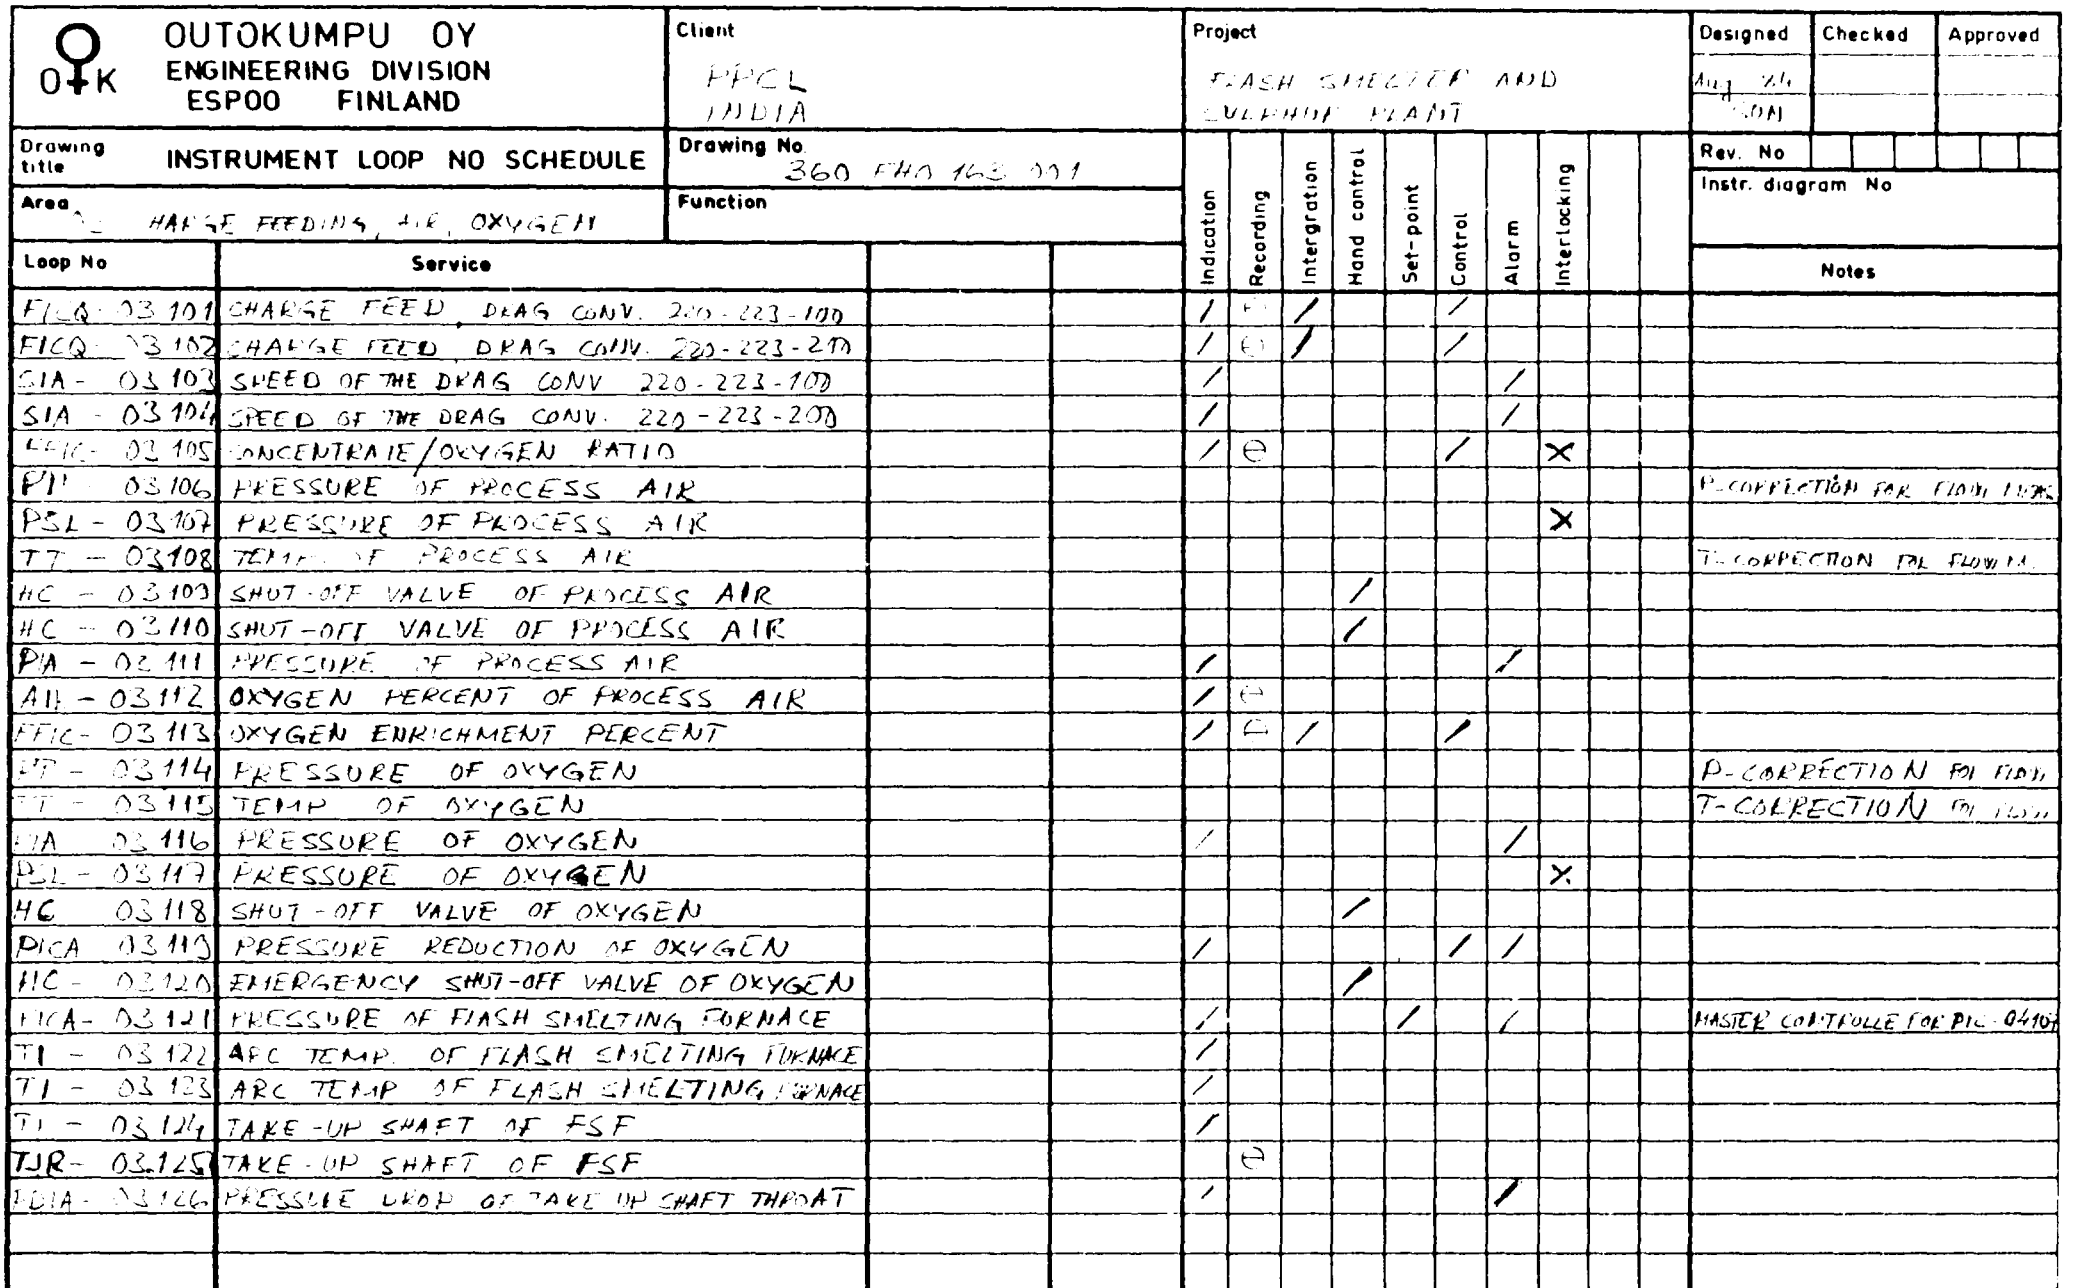 OUTOKUMPU OY
ENGINEERING DIVISION
ESPOO FINLAND
O K
Client
PPCL
INDIA
Project
FLASH SMELTER AND
SULPHUR PLANT
Designed Checked Approved
Aug 84
Drawing title INSTRUMENT LOOP NO SCHEDULE
Drawing No. 360 163 001
Rev. No
Instr. diagram No
Area HARGE FEEDING, AIR, OXYGEN
Function
Indication
Recording
Intergration
Hand control
Set-point
Control
Alarm
Interlocking
Loop No Service Notes
FICQ- 03 101 CHARGE FEED, DRAG CONV. 220-223-100 / e / /
FICQ- 03 102 CHARGE FEED, DRAG CONV. 220-223-200 / e / /
SIA - 03 103 SPEED OF THE DRAG CONV 220-223-100 / /
SIA - 03 104 SPEED OF THE DRAG CONV. 220-223-200 / /
FFIC- 03 105 CONCENTRATE/OXYGEN RATIO / e / X
03 106 PRESSURE OF PROCESS AIR P-CORRECTION FOR FLOW
PSL - 03 107 PRESSURE OF PROCESS AIR X
TT - 03 108 TEMP OF PROCESS AIR T-CORRECTION FOR FLOW
HC - 03 109 SHUT-OFF VALVE OF PROCESS AIR /
HC - 03 110 SHUT-OFF VALVE OF PROCESS AIR /
PIA - 03 111 PRESSURE OF PROCESS AIR / /
03 112 OXYGEN PERCENT OF PROCESS AIR / e
FFIC- 03 113 OXYGEN ENRICHMENT PERCENT / e / /
PT - 03 114 PRESSURE OF OXYGEN P-CORRECTION FOR FLOW
TT - 03 115 TEMP OF OXYGEN T-CORRECTION FOR FLOW
PIA 03 116 PRESSURE OF OXYGEN / /
PSL - 03 117 PRESSURE OF OXYGEN X
HC 03 118 SHUT-OFF VALVE OF OXYGEN /
PICA 03 119 PRESSURE REDUCTION OF OXYGEN / / /
HC - 03 120 EMERGENCY SHUT-OFF VALVE OF OXYGEN /
PICA- 03 121 PRESSURE OF FLASH SMELTING FURNACE / / / MASTER CONTROLLE FOR PIC-04107
TI - 03 122 ARC TEMP. OF FLASH SMELTING FURNACE /
TI - 03 123 ARC TEMP OF FLASH SMELTING FURNACE /
TI - 03 124 TAKE-UP SHAFT OF FSF /
TJR- 03.125 TAKE-UP SHAFT OF FSF e
PDIA- 03 126 PRESSURE DROP OF TAKE UP SHAFT THROAT / /